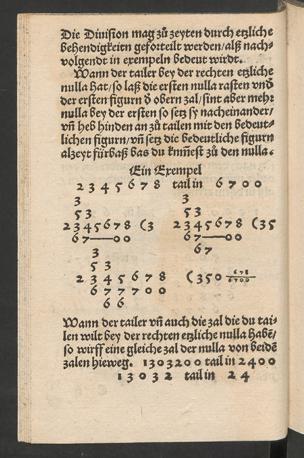 Die Division mag zů zeyten durch etzliche
behendigkeitn geforteilt werden/ alß nach⸗
volgendt in exempeln bedeut wirdt.
Wann der tailer bey der rechten etzliche
nulla hat/ so laß die ersten nulla rasten vnd̄
der ersten figurn d̄ obern zal/ sint aber mehr
nulla bey der ersten so setz sy nacheinander/
vñ heb hinden an zů tailen mit den bedeut⸗
lichen figurn/ vñ setz die bedeutliche figurn
alzeyt fürbaß bas du kum̄est zů den nulla.
Ein Exempel
2 3 4 5 6 7 8 tail in 6 7 0 0
3 3
5 3 5 3
2 3 4 5 6 7 8 (3 2 3 4 5 6 7 8 (3 5
6 7 — 0 0 6 7 — 0 0
3 6 7
5 3
2 3 4 5 6 7 8 (3 5 0 678/6700
6 7 7 7 0 0
6 6
Wann der tailer vñ auch die zal die du tai⸗
len wilt bey der rechten etzliche nulla habē/
so wirff eine gleiche zal der nulla von beidē
zalen hieweg. 1303200 tail in 2400
1 3 0 3 2 tail in 2 4